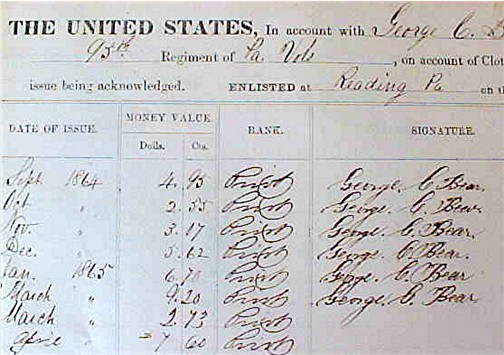 THE UNITED STATES, In account with George C. B
95th Regiment of Pa Vols , on account of Clot
issue being acknowledged. ENLISTED at Reading Pa on th
DATE OF ISSUE. MONEY VALUE. RANK. SIGNATURE.
Dolls. Cts.
Sept 1864 4. 95 Privt George. C. Bear.
Oct " 2. 55 Privt George. C. Bear
Nov. " 3. 07 Privt George C. Bear.
Dec. " 5. 62 Privt George. C. Bear.
Jan. 1865 6. 70 Privt George. C. Bear
March " 9. 20 Privt George. C. Bear
March " 2. 73 Privt
April " 7 60 Privt